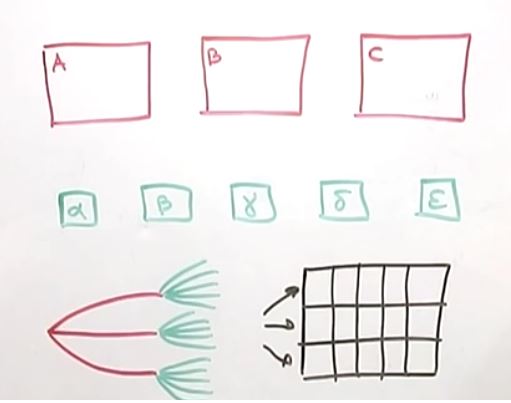 A B C
α β γ δ ε